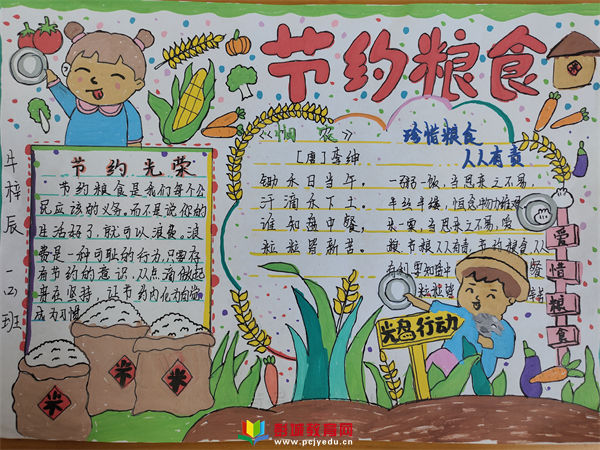 节约粮食
牛梓辰 一四班
节约光荣
节约粮食是我们每个公
民应该的义务。而不是说你的
生活好了,就可以浪费。浪
费是一种可耻的行为,只要存
有节约的意识,从点滴做起
并去坚持,让节约内化为自觉
成为习惯
《悯农》
[唐]李绅
锄禾日当午,
汗滴禾下土。
谁知盘中餐,
粒粒皆辛苦。
珍惜粮食
人人有责
一粥一饭,当思来之不易,
半丝半缕,恒念物力维艰
来之不易,
粮 节粮人人有责 节约粮食人人
爱惜粮食
光盘行动
米
米
米
彭城教育网
www.pcjyedu.cn